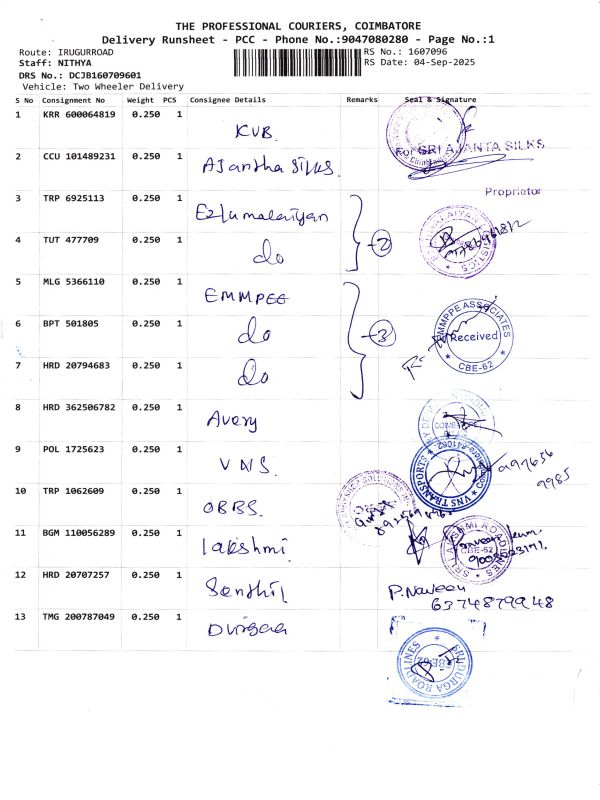 THE PROFESSIONAL COURIERS, COIMBATORE
Delivery Runsheet - PCC - Phone No.:9047080280 - Page No.:1
Route: IRUGURROAD
RS No.: 1607096
Staff: NITHYA
RS Date: 04-Sep-2025
DRS No.: DCJB160709601
Vehicle: Two Wheeler Delivery
S No Consignment No Weight PCS Consignee Details Remarks Seal & Signature
1 KRR 600064819 0.250 1 KVB
For SRI AJANTA SILKS
2 CCU 101489231 0.250 1 AJantha SILKS.
Proprietor
3 TRP 6925113 0.250 1 Ezhumalaiyan
4 TUT 477709 0.250 1 do
-2
5 MLG 5366110 0.250 1 EMMPEE
6 BPT 501805 0.250 1 do
-3
EMMPPE ASSOCIATES
Received
CBE-62
7 HRD 20794683 0.250 1 do
8 HRD 362506782 0.250 1 Avery
9 POL 1725623 0.250 1 VNS.
VNS TRANSPORTS
997656
9985
10 TRP 1062609 0.250 1 OBBS.
11 BGM 110056289 0.250 1 lakshmi
CBE-62
12 HRD 20707257 0.250 1 Senthil
P.Naveen
6374879948
13 TMG 200787049 0.250 1 Durgaa
SRI DURGA ROADLINES
CBE62